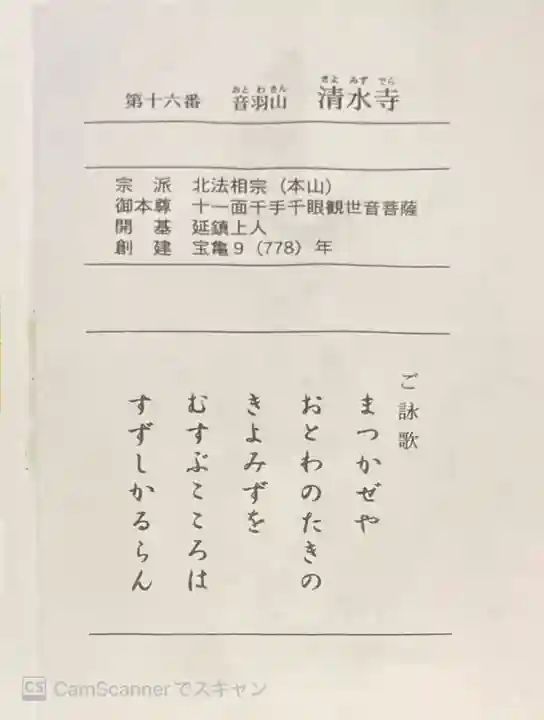 第十六番 音羽山 清水寺
おとわさん きよみずでら
宗派 北法相宗（本山）
御本尊 十一面千手千眼観世音菩薩
開基 延鎮上人
創建 宝亀9（778）年
ご詠歌
まつかぜや
おとわのたきの
きよみずを
むすぶこころは
すずしかるらん
CS CamScannerでスキャン